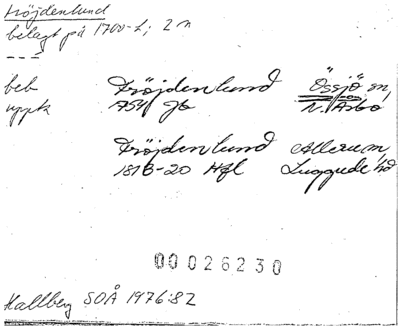 Fröjdenlund
belagt på 1700-t; 2 n
beb Fröjdenlund Össjö sn,
uppk 1754 Jb N. Åsbo
Fröjdenlund Allerum,
1818-20 Hfl Luggude hd
00026230
Hallberg SOÅ 1976:82